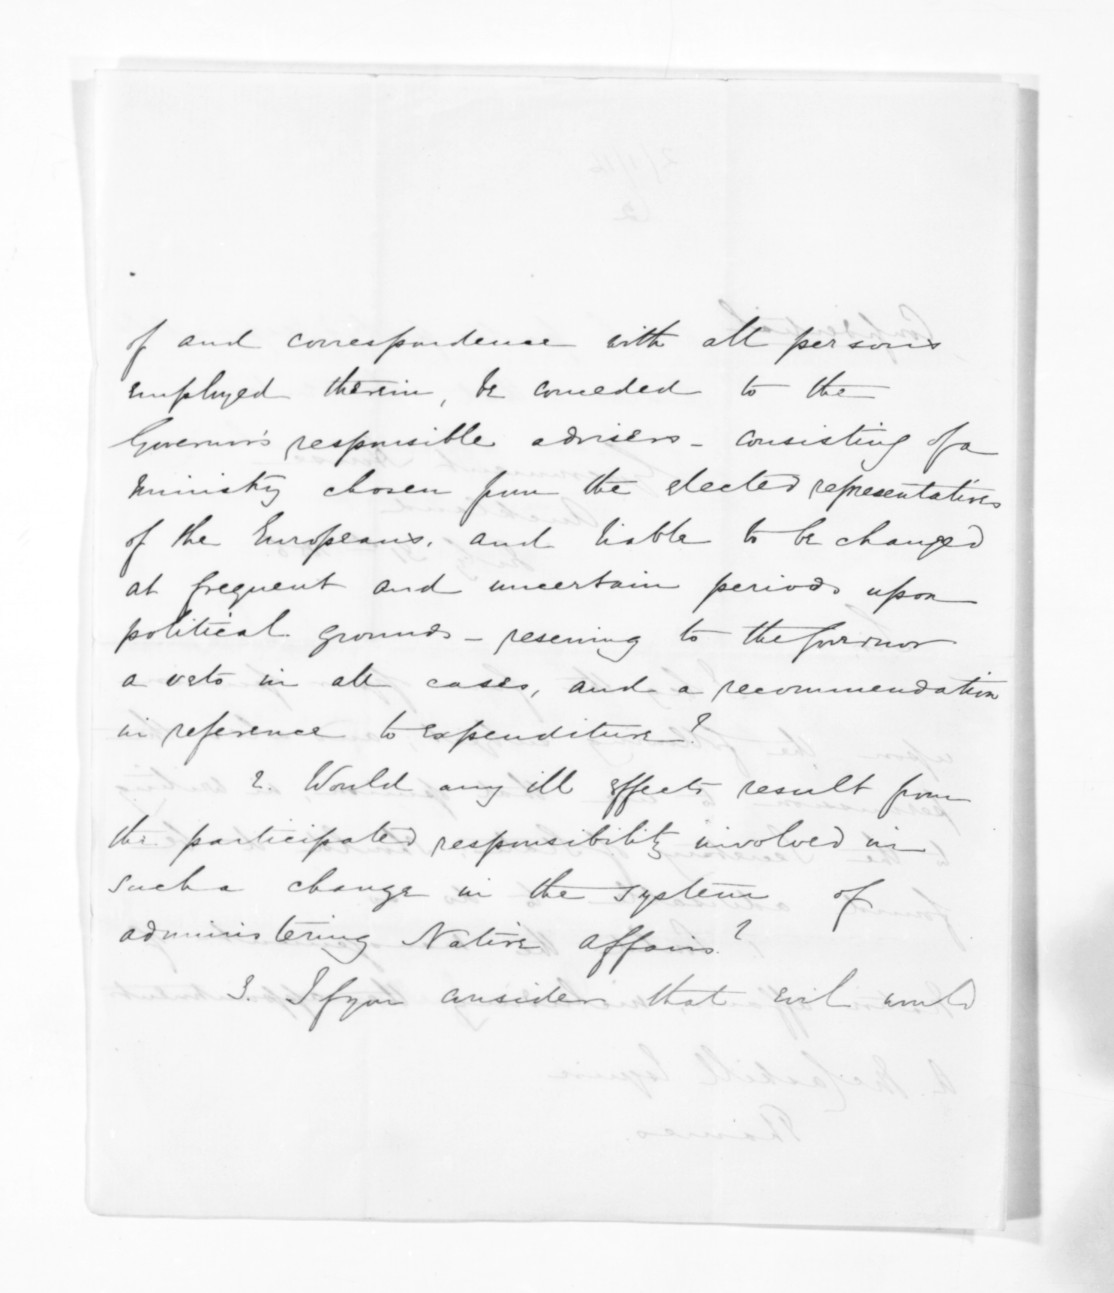 of and correspondence with all persons
employed therein, be conceded to the
Governor's responsible advisers - consisting of a
ministry chosen from the elected representatives
of the Europeans, and liable to be changed
at frequent and uncertain periods upon
political grounds - reserving to the Governor
a veto in all cases, and a recommendation
in reference to expenditure?
2. Would any ill effects result from
the participated responsibility involved in
such a change in the system of
administering Native affairs?
3. If you consider that evil would